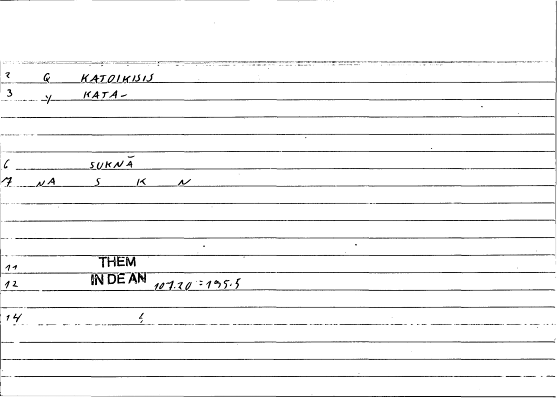 2 G KATOIKISIS
3 y KATA-
6 SUKNĀ
7 NA S K N
11 THEM
12 IN DE AN 107.20 = 195.5
14 !